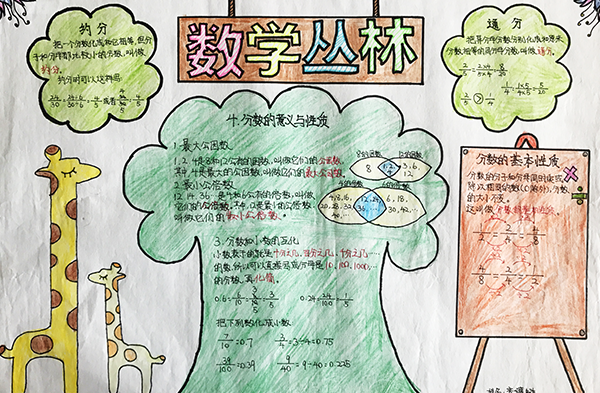 数学丛林
约分
把一个分数化成和它相等,但分
子和分母都比较小的分数,叫做
约分。
约分时可以这样写:
24/30=24÷6/30÷6=4/5或者24/30=4/5
通分
把异分母分数分别化成和原来
分数相等的同分母分数,叫做通分。
2/5=2×4/5×4=8/20
1/4=1×5/4×5=5/20
2/5>1/4
四.分数的意义与性质
1.最大公因数
1.2.4是8和12公有的因数,叫做它们的公因数。
其中,4是最大的公因数,叫做它们的最大公因数。
8的因数 12的因数
8 1,2,4 3,6,12
2.最小公倍数
12.24.36…是4和6公有的倍数,叫做
它们的公倍数。其中,12是最小的公倍数,
叫做它们的最小公倍数。
4的倍数 6的倍数
4,8,16, 12,24, 6,18,
20,28,32 36,… 30,42,…
40,…
3.分数和小数的互化
小数表示的就是十分之几,百分之几,千分之几…
的数,所以可以直接写成分母是10,100,1000,…
的分数,再化简。
0.6=6/10=3/5 0.24=24/100
把下列数化成小数
7/10=0.7 3/4=3÷4=0.75
39/100=0.39 9/40=9÷40=0.225
分数的基本性质
分数的分子和分母同时乘或
除以相同的数(0除外),分数
的大小不变。
这叫做分数的基本性质。
1/2=2/4=4/8
4/8=2/4=1/2